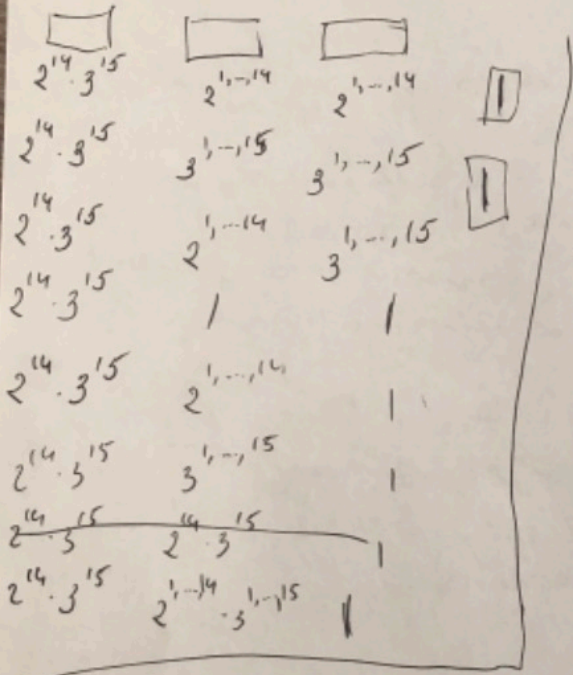 2^14 · 3^15 2^1,--,14 2^1,--,14 1
2^14 · 3^15 3^1,--,15 3^1,--,15 1
2^14 · 3^15 2^1,--14 3^1,--,15
2^14 · 3^15 1 1
2^14 · 3^15 2^1,---,14 1
2^14 · 3^15 3^1,--,15 1
2^14 · 3^15 2^14 · 3^15 1
2^14 · 3^15 2^1,--,14 · 3^1,--,15 1